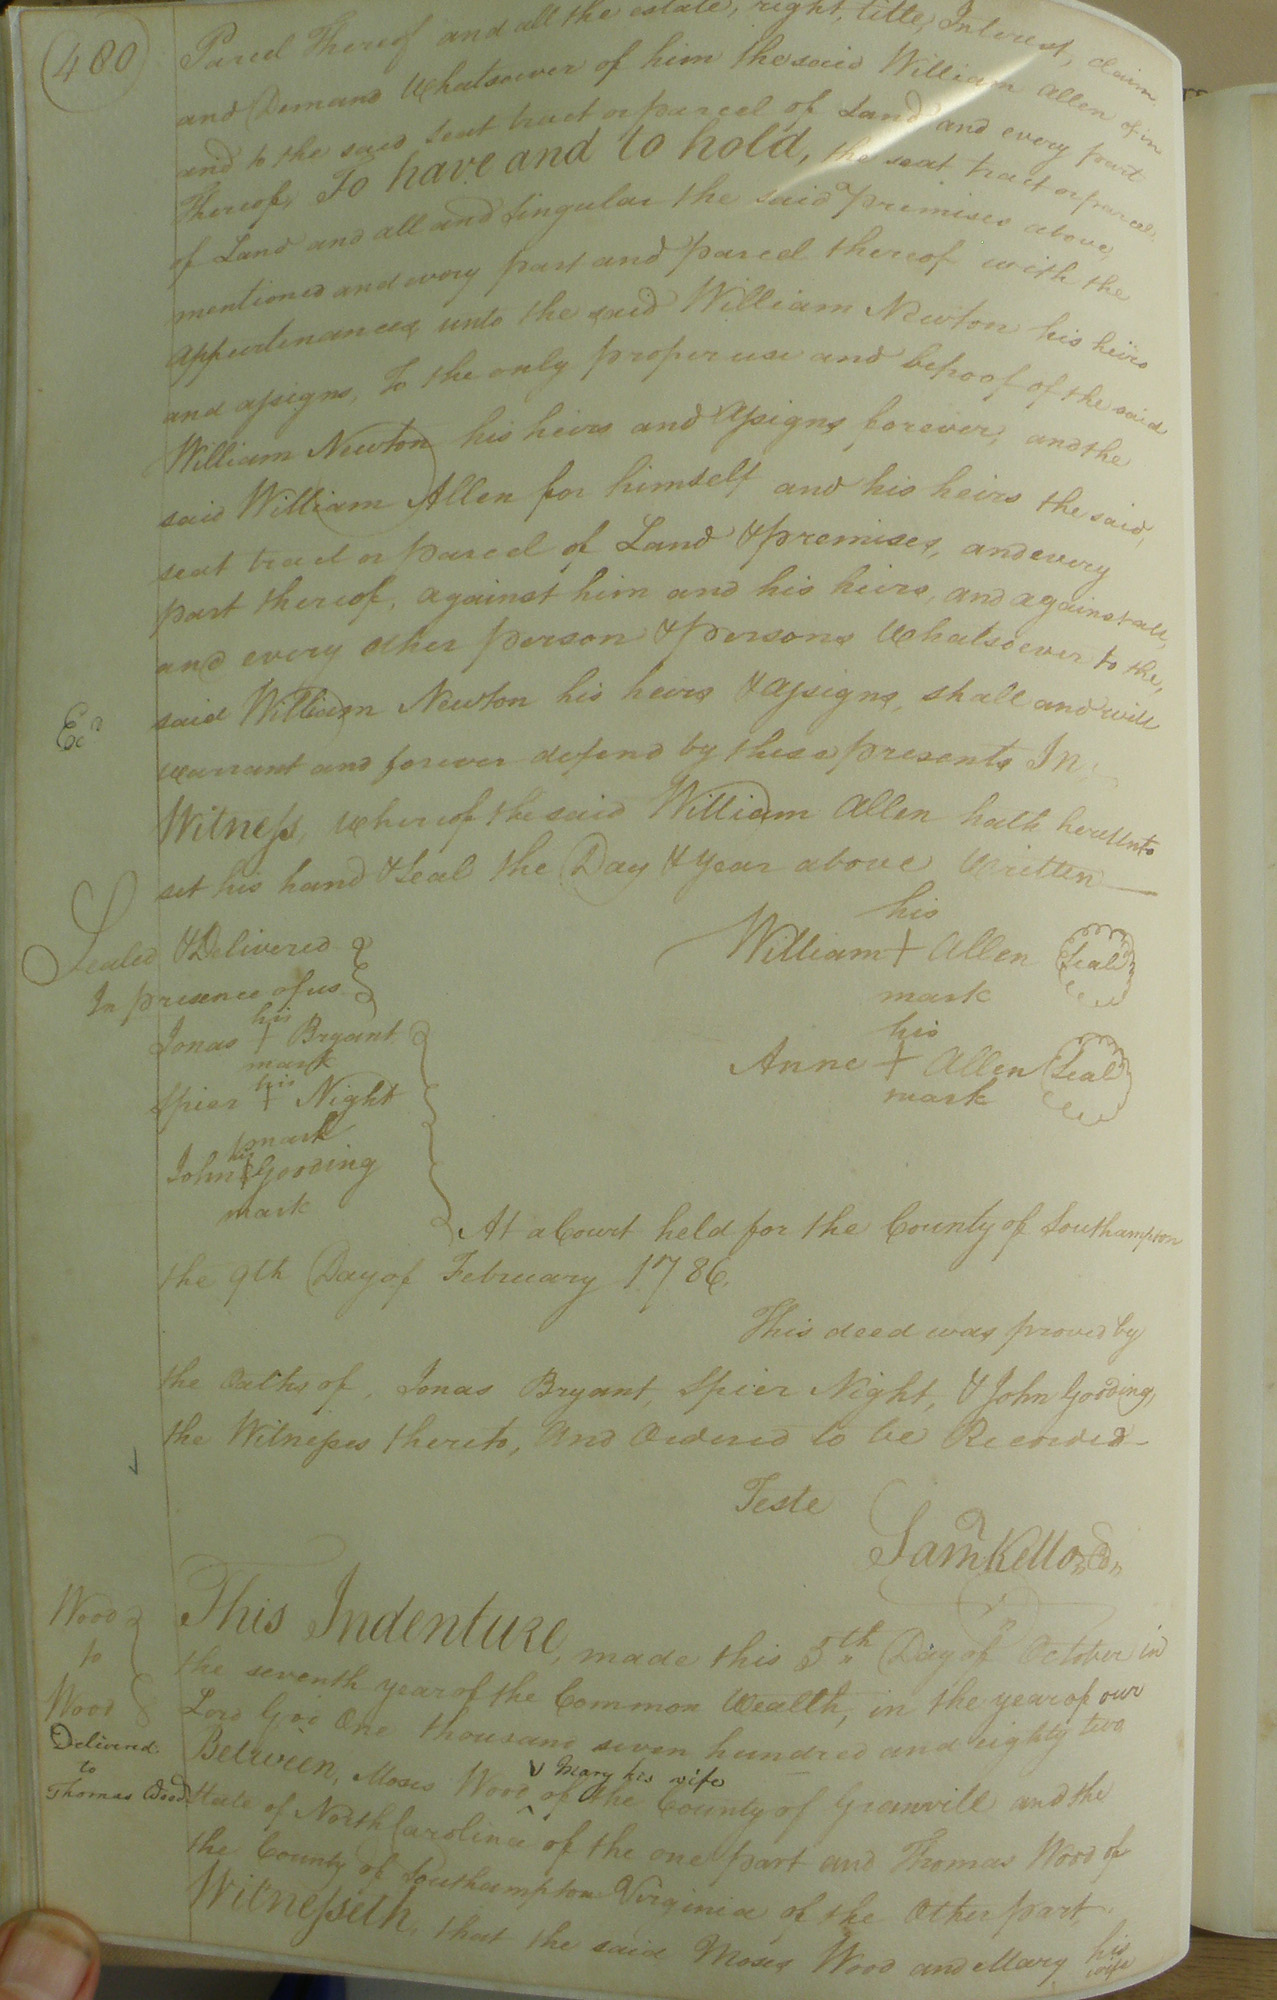 480
Parcel Thereof and all the estate, right, title, Interest, claim
and Demand Whatsoever of him the said William Allen of in
and to the said seat tract or parcel of Land and every part
Thereof, To have and to hold, the seat tract or parcel,
of Land and all and Singular the said premises above,
mentioned and every part and parcel thereof with the
appurtenances, unto the said William Newton his heirs
and assigns, To the only proper use and behoof of the said
William Newton his heirs and Assigns forever, and the
said William Allen for himself and his heirs the said,
seat tract or parcel of Land & premises, and every
part thereof, against him and his heirs, and against all,
and every other person & persons Whatsoever to the,
said William Newton his heirs & assigns, shall and will
Exd
warrant and forever defend by these presents In
Witness, Whereof the said William Allen hath hereunto
set his hand & Seal the Day & year above Written
Sealed & Delivered
In presence of us
his
William + Allen Seal
mark
his
Jonas + Bryant
mark
his
Anne + Allen Seal
mark
his
Spier + Night
mark
his
John + Gooding
mark
At a Court held for the County of Southampton
the 9th Day of February 1786.
This deed was proved by
the Oaths of, Jonas Bryant, Spier Night, & John Gooding,
the Witnesses thereto, And Ordered to be Recorded
Teste
Saml Kello
Wood
to
Wood
Delivered
to
Thomas Wood
This Indenture, made this 5th Day of October in
the seventh year of the Common Wealth, in the year of our
Lord God One thousand seven hundred and eighty two
Between, Moses Wood of the County of Granvill and the
Mary his wife
State of North Carolina of the one part and Thomas Wood of
the County of Southampton Virginia of the Other part,
Witnesseth, that the said Moses Wood and Mary his
wife